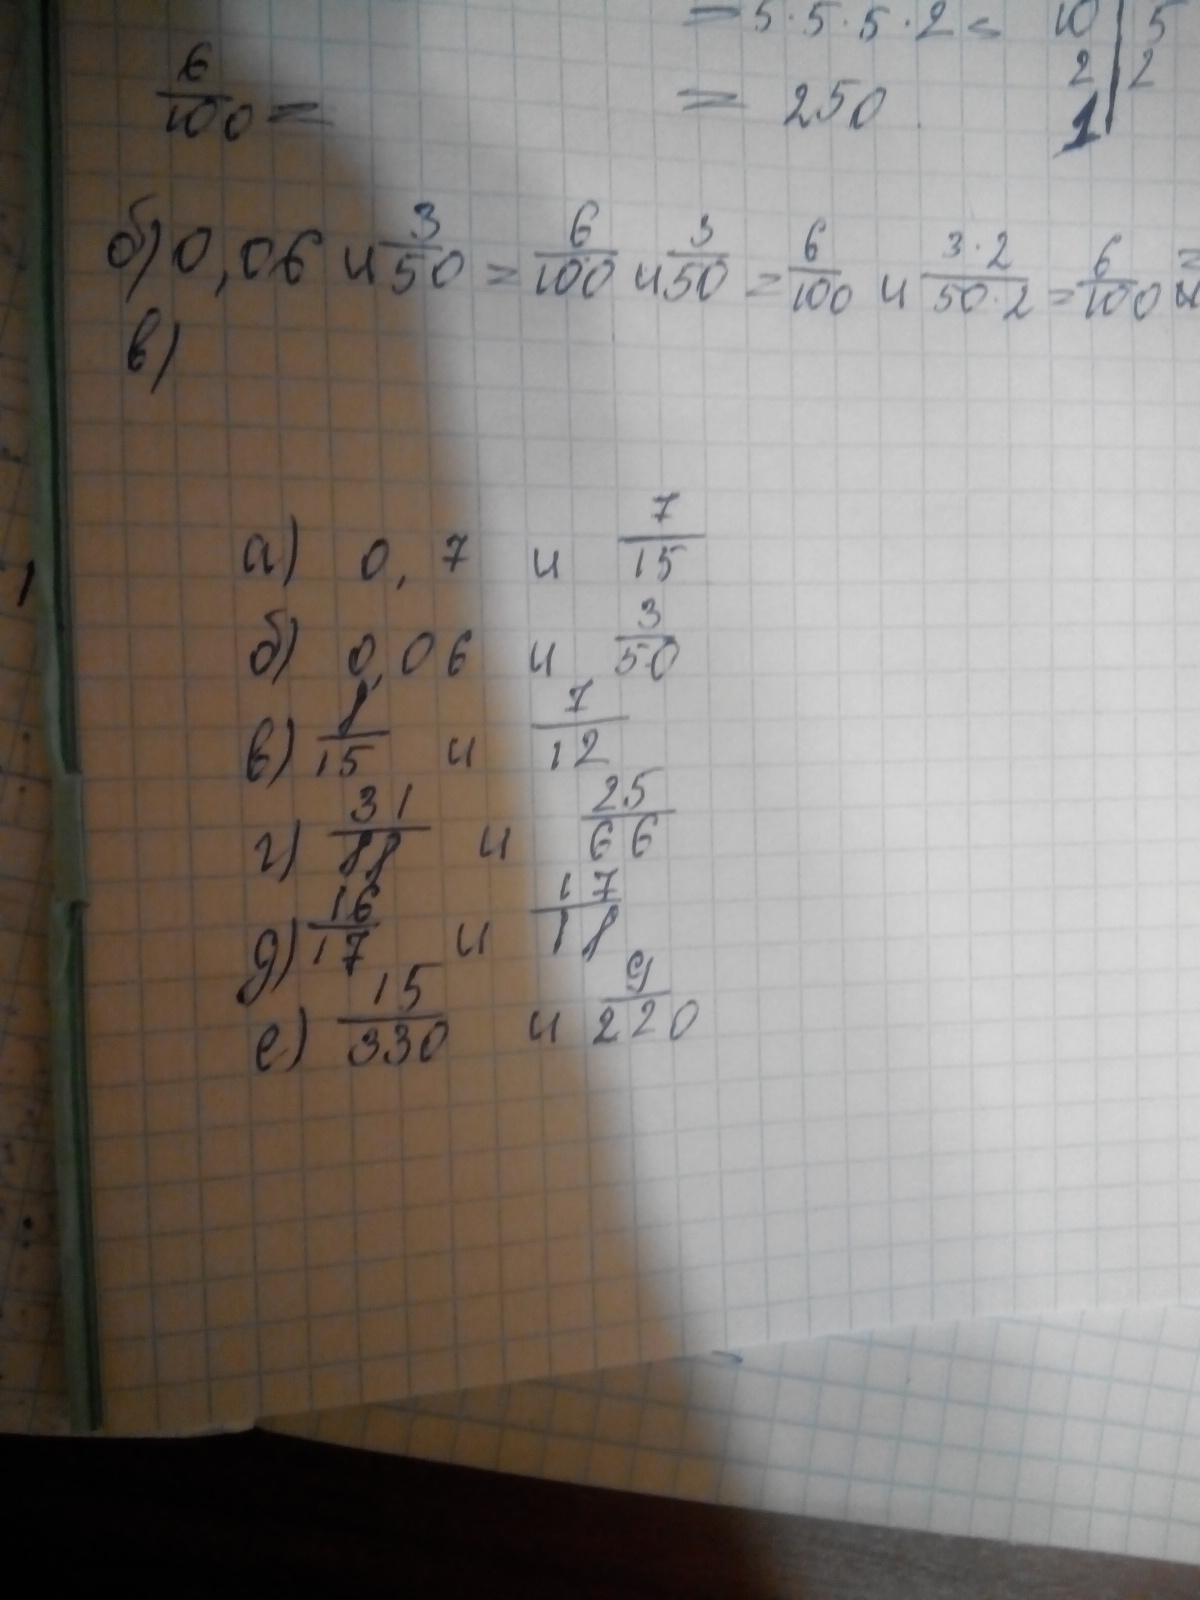 = 5·5·5·2 = 10 | 5
2 | 2
6/100 = = 250 1
б) 0,06 и 3/50 = 6/100 и 3/50 = 6/100 и 3·2/50·2 = 6/100
в)
а) 0,7 и 7/15
б) 0,06 и 3/50
в) 8/15 и 7/12
г) 31/88 и 25/66
д) 16/17 и 17/18
е) 15/330 и 9/220